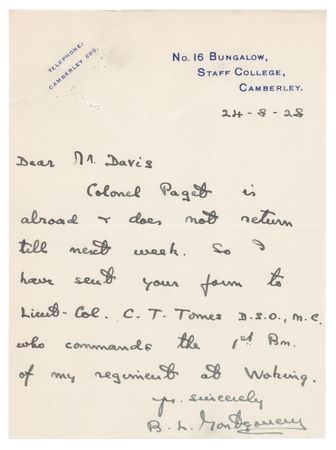 TELEPHONE:
CAMBERLEY 550.
No. 16 BUNGALOW,
STAFF COLLEGE,
CAMBERLEY.
24-8-28
Dear Mr. Davis
Colonel Paget is
abroad & does not return
till next week. So I
have sent your form to
Lieut-Col. C. T. Tomes D.S.O., M.C.
who commands the 1st Bn.
of my regiment at Woking.
yrs. sincerely
B. L. Montgomery